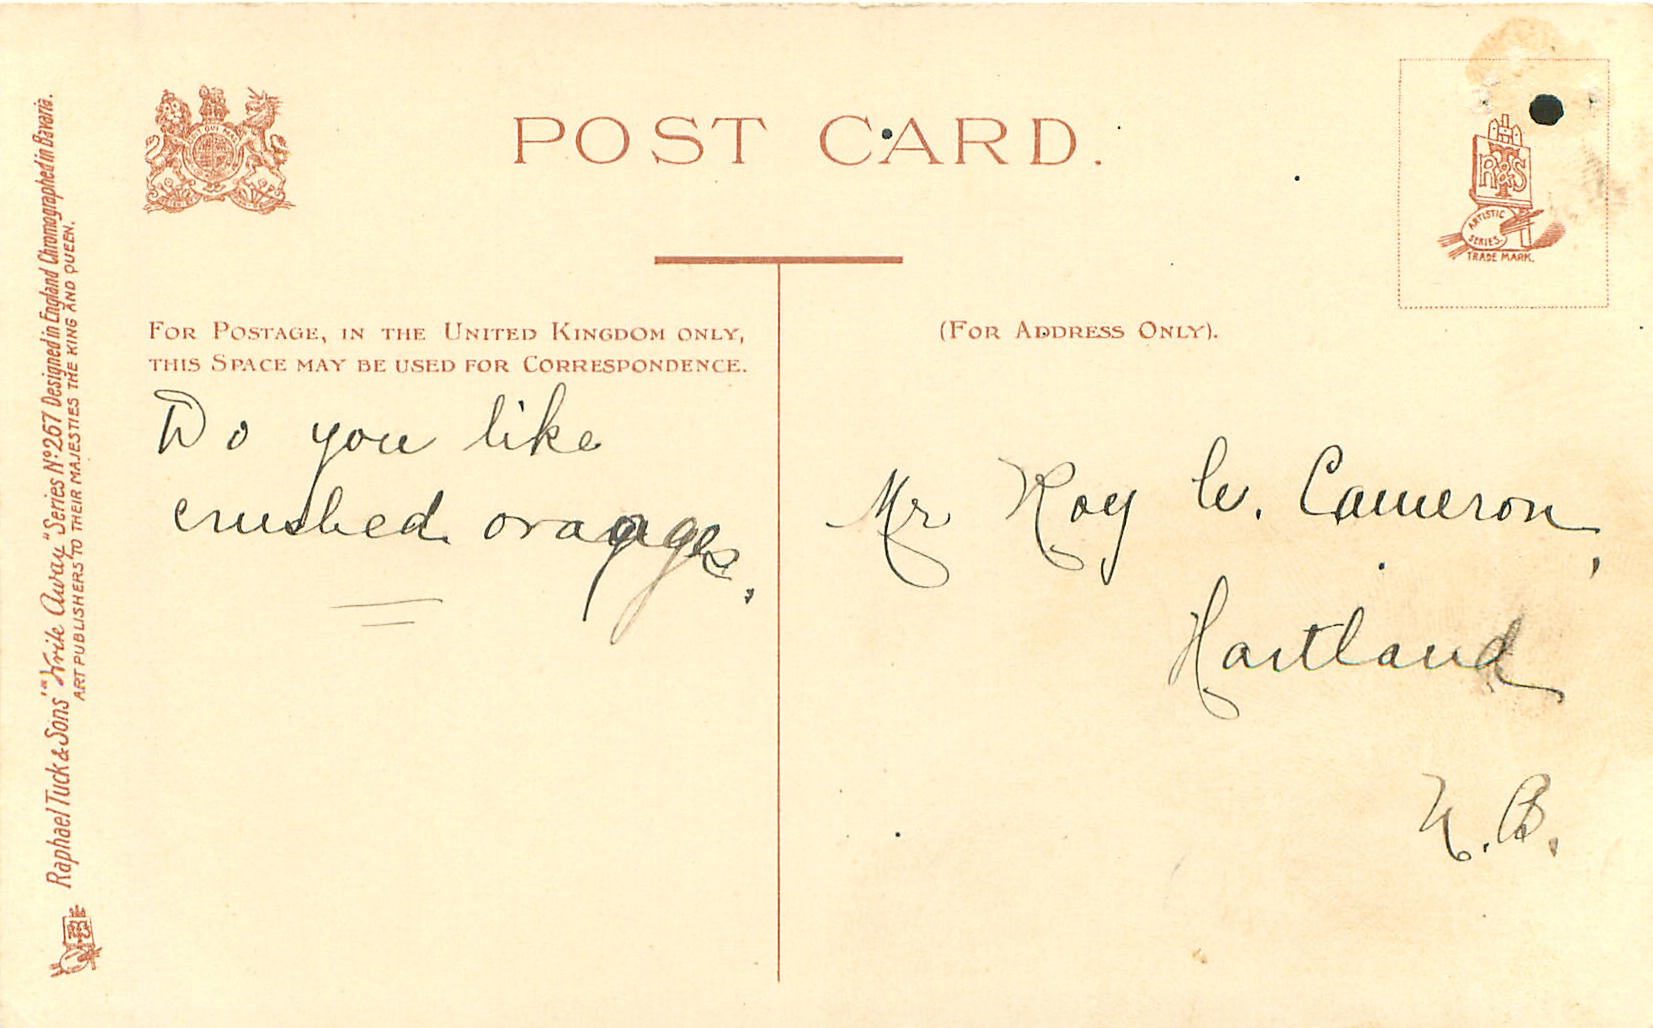 POST CARD.
R&TS
ARTISTIC
SERIES.
TRADE MARK.
FOR POSTAGE, IN THE UNITED KINGDOM ONLY,
THIS SPACE MAY BE USED FOR CORRESPONDENCE.
(FOR ADDRESS ONLY).
Do you like
crushed oranges.
Mr Roy W. Cameron,
Hartland
N.B.
Raphael Tuck & Sons' "Write Away" Series No. 267 Designed in England Chromographed in Bavaria.
ART PUBLISHERS TO THEIR MAJESTIES THE KING AND QUEEN.